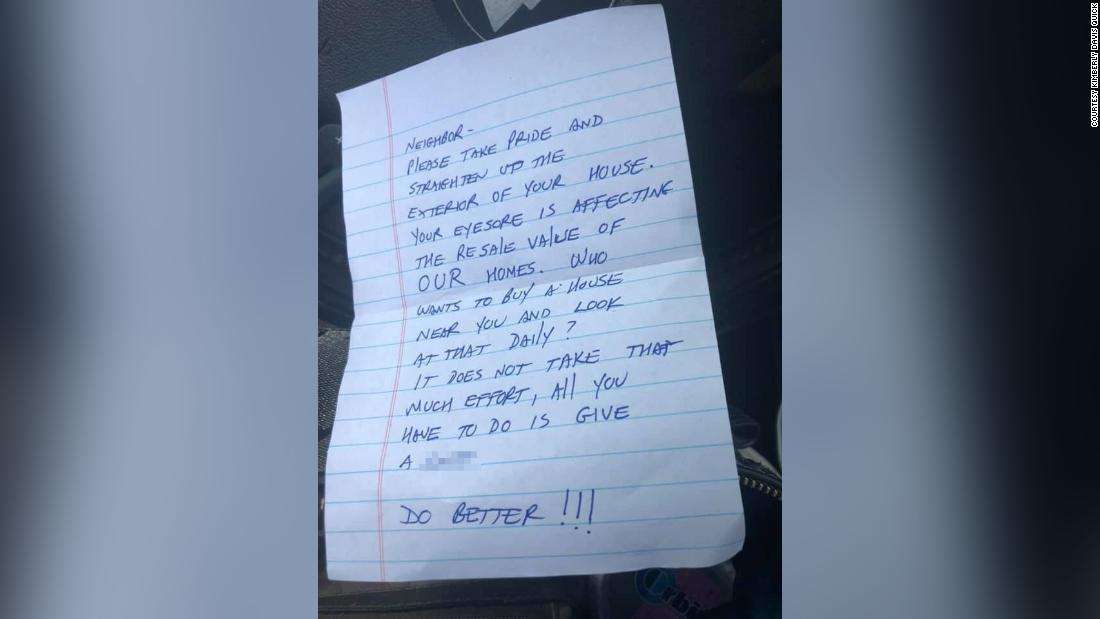 NEIGHBOR-
PLEASE TAKE PRIDE AND
STRAIGHTEN UP THE
EXTERIOR OF YOUR HOUSE.
YOUR EYESORE IS AFFECTING
THE RESALE VALUE OF
OUR HOMES. WHO
WANTS TO BUY A HOUSE
NEAR YOU AND LOOK
AT THAT DAILY?
IT DOES NOT TAKE THAT
MUCH EFFORT, All YOU
HAVE TO DO IS GIVE
A
DO BETTER!!!
COURTESY KIMBERLY DAVIS QUICK